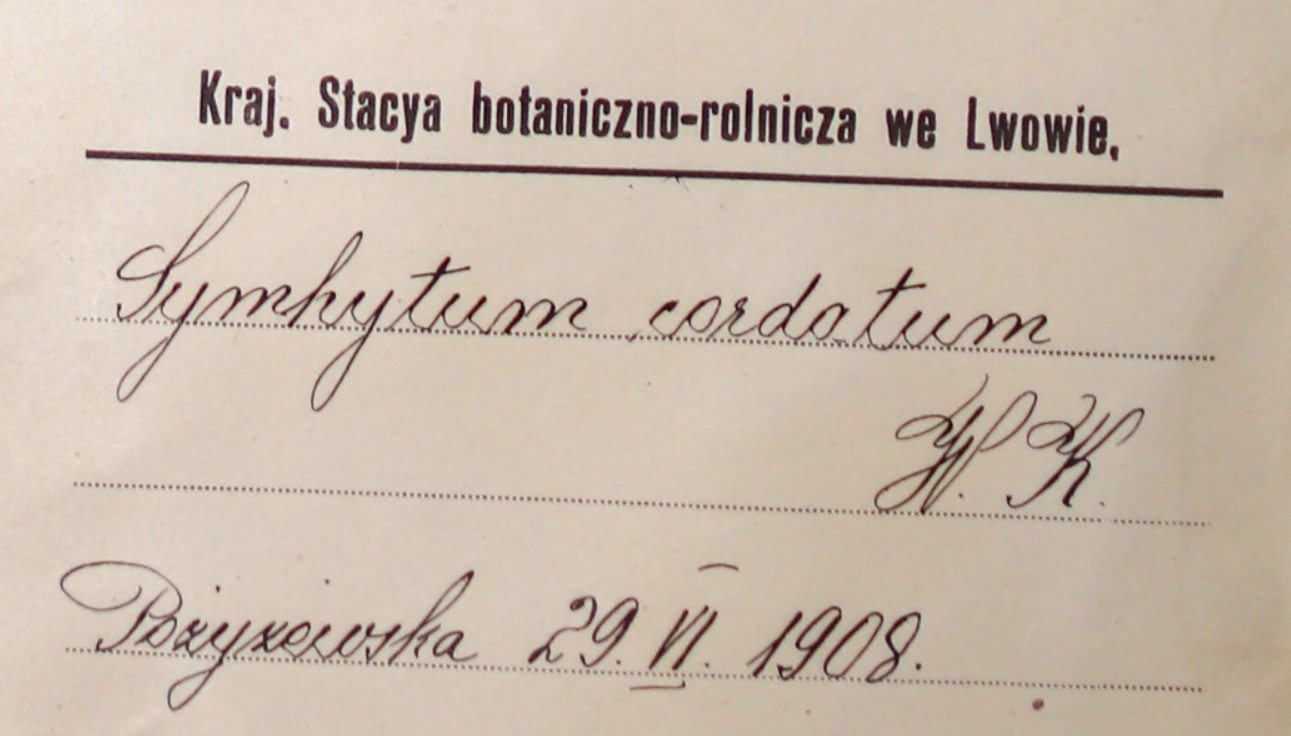 Kraj. Stacya botaniczno-rolnicza we Lwowie.
Symhytum cordatum
W. K.
Pożyżewska 29. VI. 1908.